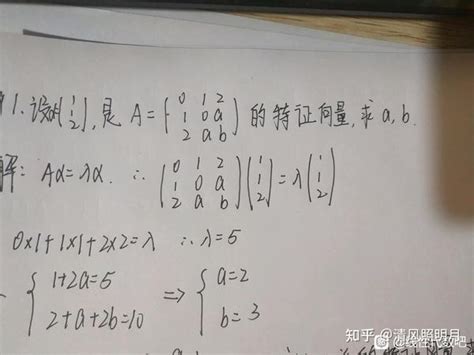 1. 设α(1 1 2), 是 A = (0 1 2 1 0 a 2 a b) 的特征向量, 求 a, b.
解: Aα=λα. ∴ (0 1 2 1 0 a 2 a b)(1 1 2)=λ(1 1 2)
0×1+1×1+2×2=λ ∴λ=5
{1+2a=5 2+a+2b=10 ⇒ {a=2 b=3
知乎 @清风照明月
@线性代数吧